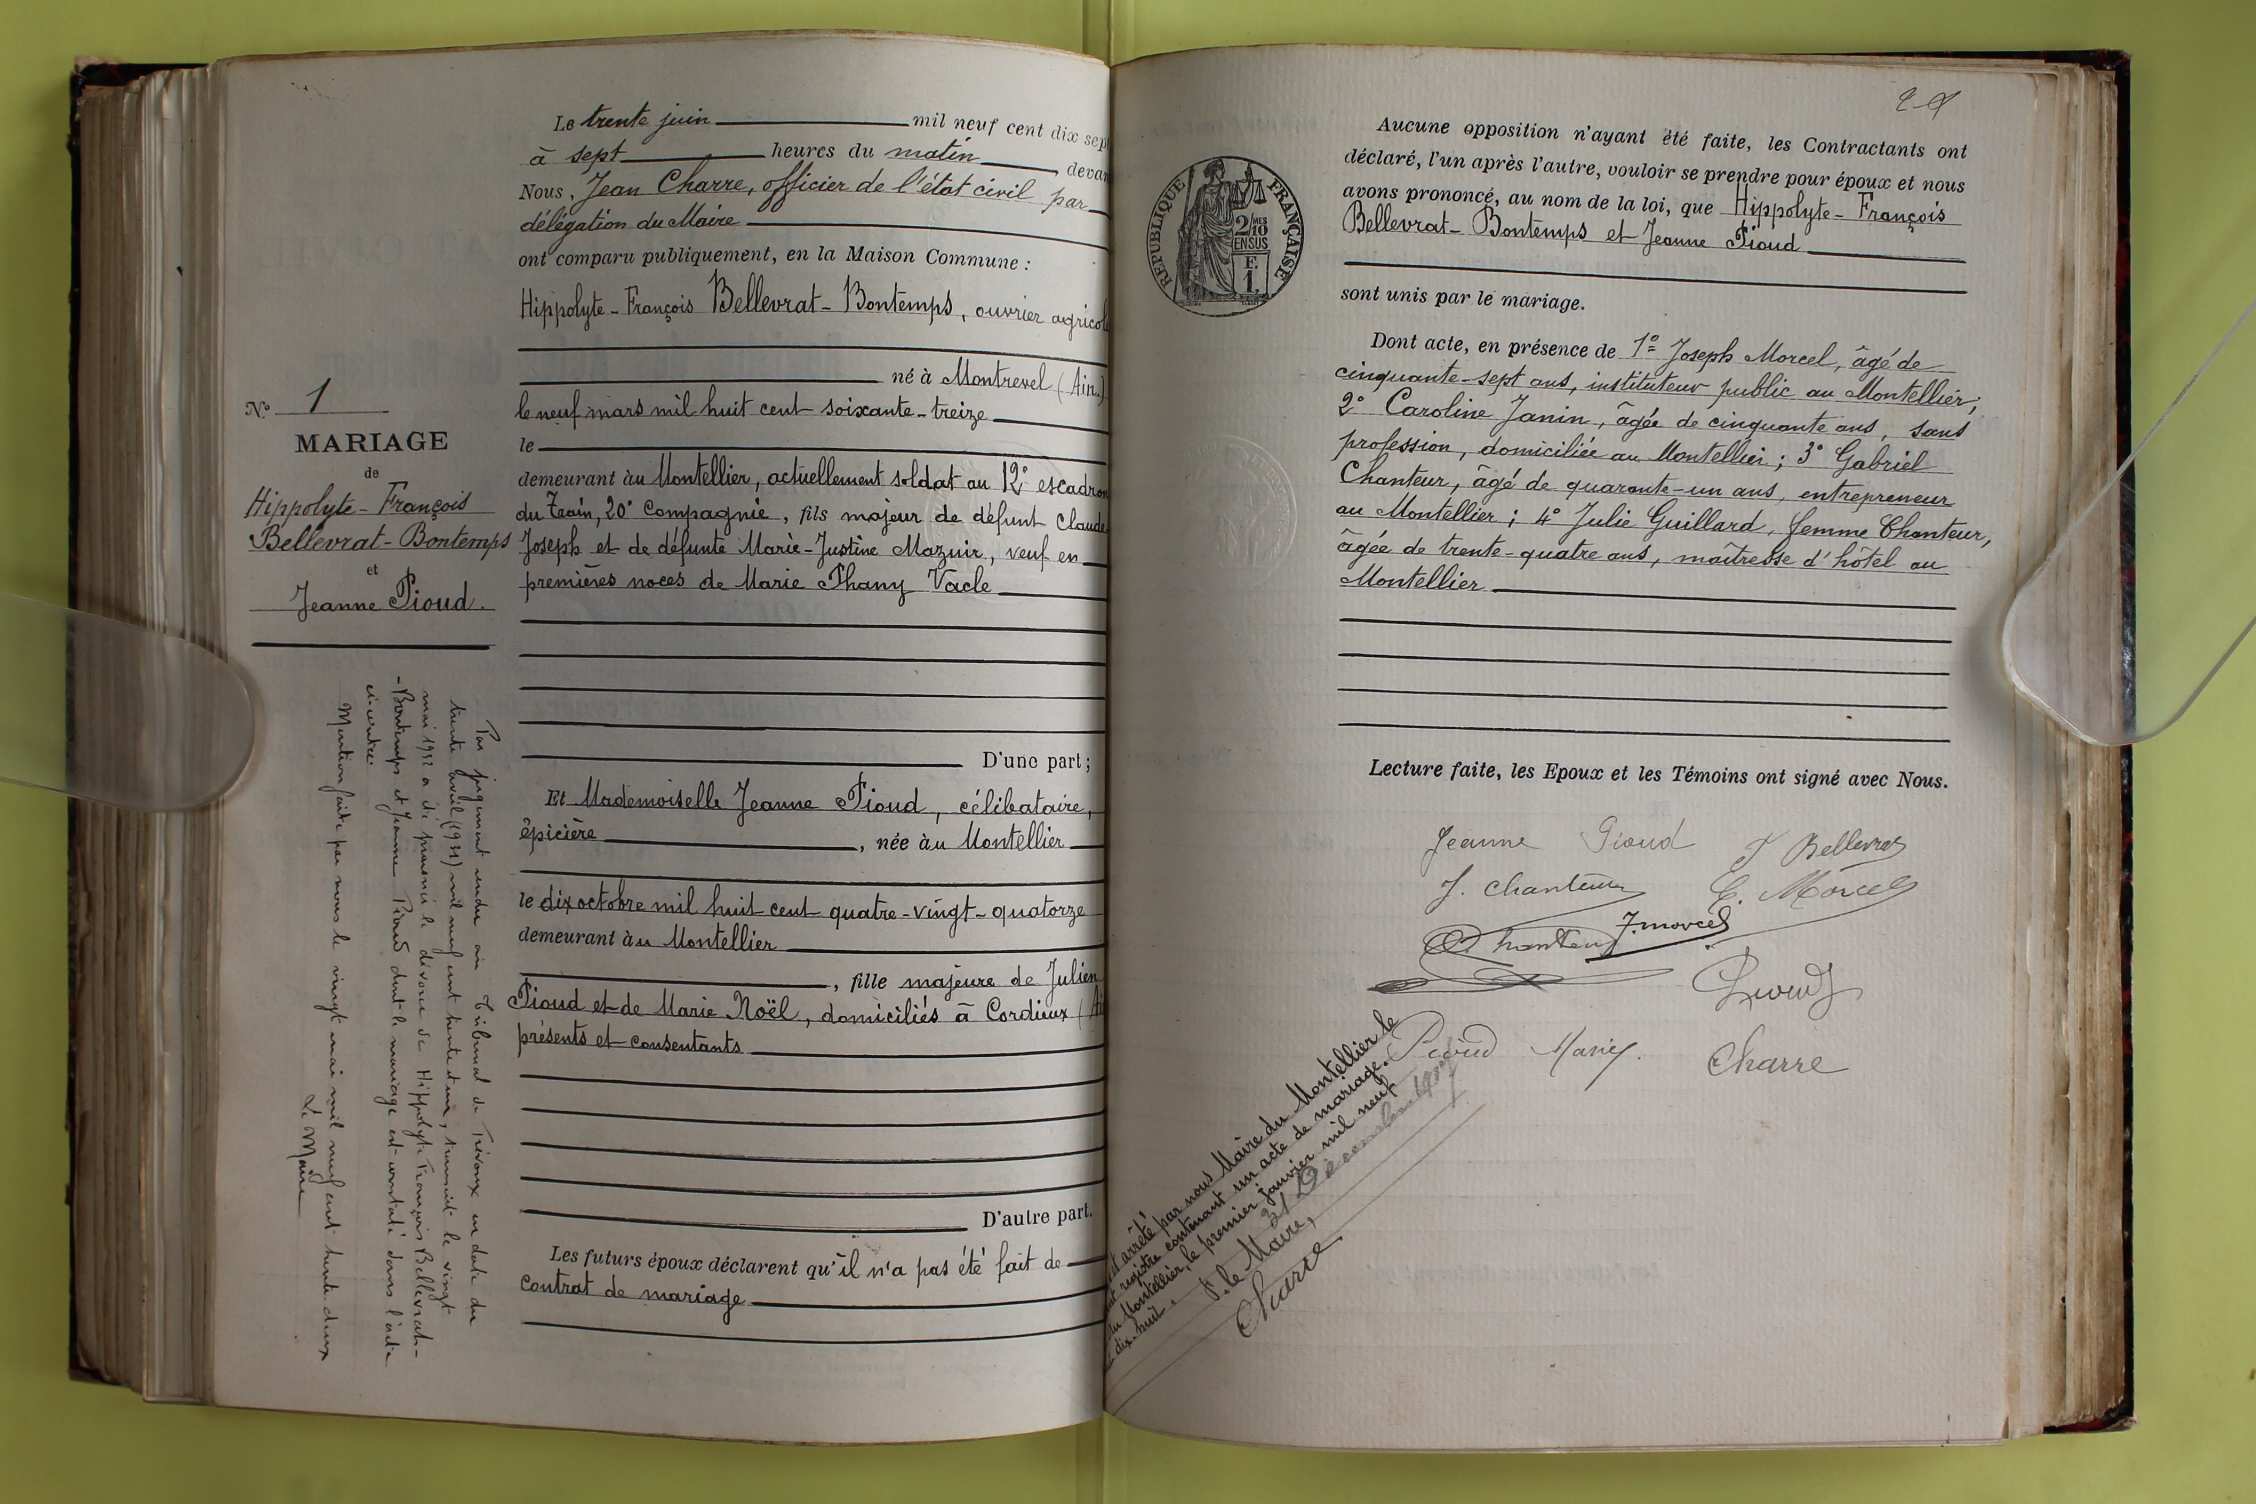 Le trente juin mil neuf cent dix sept
à sept heures du matin, devan
Nous, Jean Charre, officier de l'état civil par
délégation du Maire
ont comparu publiquement, en la Maison Commune :
Hippolyte-François Bellevrat-Bontemps, ouvrier agricole
né à Montrevel (Ain.)
le neuf mars mil huit cent soixante-treize
le
demeurant àu Montellier, actuellement soldat au 12e escadron
du Train, 20e Compagnie, fils majeur de défunt Claude
Joseph et de défunte Marie-Justine Mazuir, veuf en
premières noces de Marie Phany Vacle
D'une part ;
Et Mademoiselle Jeanne Pioud, célibataire,
épicière, née àu Montellier
le dix octobre mil huit cent quatre-vingt-quatorze
demeurant àu Montellier
, fille majeure de Julien
Pioud et de Marie Noël, domiciliés à Cordieux (Ai
présents et consentants
D'autre part.
Les futurs époux déclarent qu'il n'a pas été fait de
contrat de mariage
No 1
MARIAGE
de
Hippolyte-François
Bellevrat-Bontemps
et
Jeanne Pioud.
Par jugement rendu au Tribunal de Trévoux en date du
trente avril (1931) mil neuf cent trente et un, transcrit le vingt
mai 1932 a été prononcé le divorce de Hippolyte François Bellevrat-
-Bontemps et Jeanne Pioud dont le mariage est constaté dans l'acte
ci-contre.
Mention faite par nous le vingt mai mil neuf cent trente deux
Le Maire
2
REPUBLIQUE FRANÇAISE
2/10 MES
EN SUS
F.
1.
Aucune opposition n'ayant été faite, les Contractants ont
déclaré, l'un après l'autre, vouloir se prendre pour époux et nous
avons prononcé, au nom de la loi, que Hippolyte-François
Bellevrat-Bontemps et Jeanne Pioud
sont unis par le mariage.
Dont acte, en présence de 1o Joseph Morcel, âgé de
cinquante-sept ans, instituteur public au Montellier ;
2o Caroline Janin, âgée de cinquante ans, sans
profession, domiciliée au Montellier ; 3o Gabriel
Chanteur, âgé de quarante-un ans, entrepreneur
au Montellier ; 4o Julie Guillard, femme Chanteur,
âgée de trente-quatre ans, maîtresse d'hôtel au
Montellier
Lecture faite, les Epoux et les Témoins ont signé avec Nous.
Jeanne Pioud Bellevrat
J. Chanteur C. Morcel
Chanteur J. Morcel
Pioud
Pioud Marie
Charre
arrêté par nous Maire du Montellier le
registre contenant un acte de mariage.
du Montellier, le premier janvier mil neuf
dix-huit. 31 Décembre
P. le Maire,
Charre